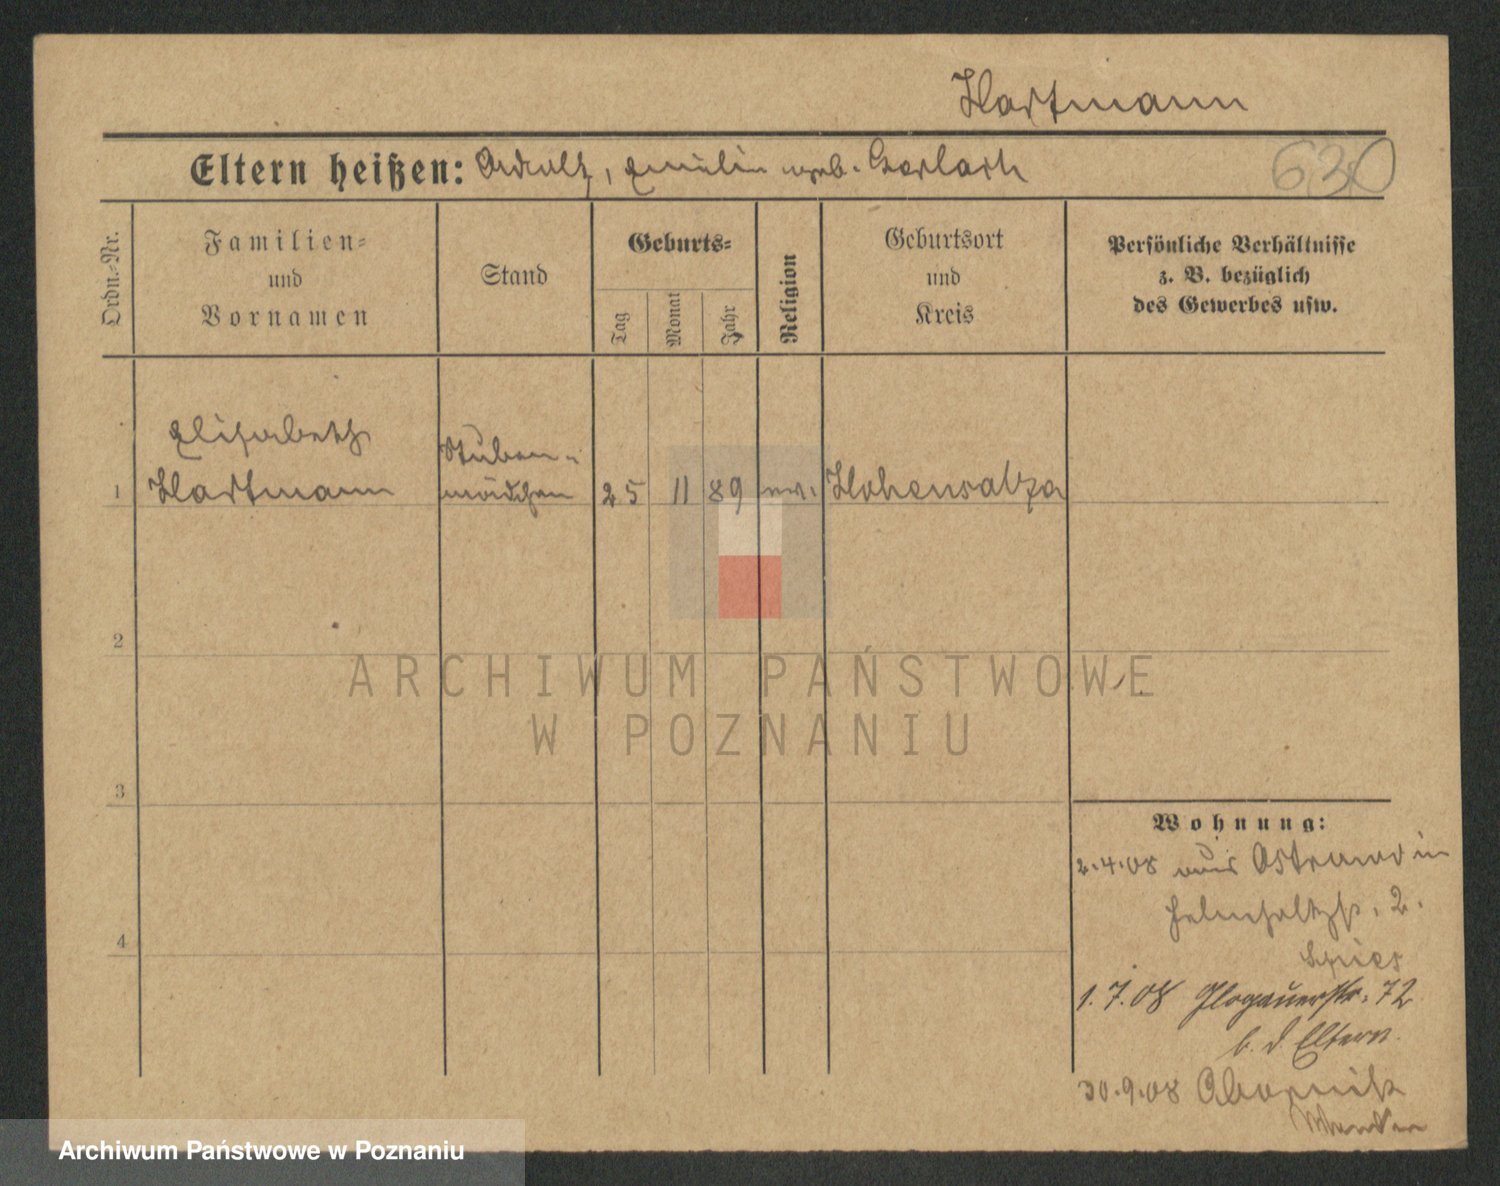 Hartmann
Eltern heißen: Adolf, Emilie geb. Gerlach
630
Ordn.-Nr.
Familien-
und
Vornamen
Stand
Geburts-
Tag
Monat
Jahr
Religion
Geburtsort
und
Kreis
Persönliche Verhältnisse
z. B. bezüglich
des Gewerbes usw.
Elisabeth
Stuben-
1 Hartmann mädchen 25 11 89 ev. Hohensalza
2
ARCHIWUM PAŃSTWOWE
W POZNANIU
3
Wohnung:
2.4.08 aus Ostrowo in
2.
4
1.7.08 Glogauerstr. 72
b. d Eltern.
30.9.08 Obornik
Archiwum Państwowe w Poznaniu